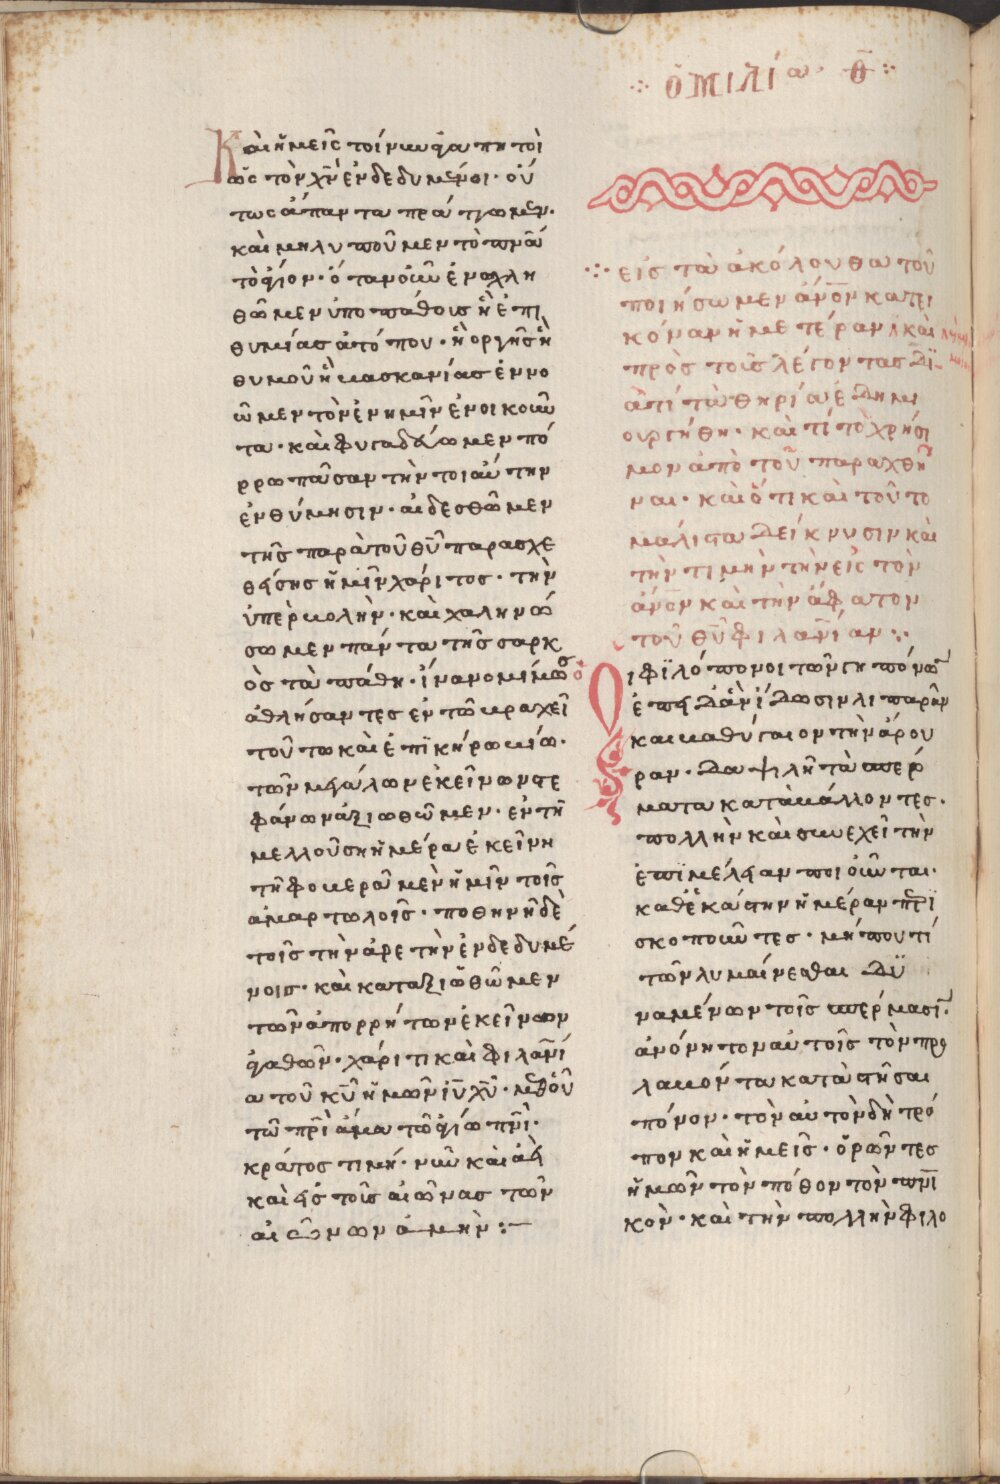 Καὶ ἡμεῖς τοίνυν ἀγαπητοὶ
ὡς τὸν χν̄ ἐνδεδυμένοι· οὕ
τως ἅπαντα πράττωμεν·
καὶ μὴ λυποῦμεν τὸ πνᾶ
τὸ ἅγιον· ὅταν οὖν ἐνοχλη
θῶμεν ὑπο πάθους ἢ ἐπι
θυμίας ἀτόπου· ἢ ὀργῆς ἢ
θυμοῦ ἢ βασκανίας ἐννο
ῶμεν τὸν ἐν ἡμῖν ἐνοικοῦν
τα· καὶ φυγαδεύωμεν πό
ρρω πᾶσαν τὴν τοιαύτην
ἐνθύμησιν· αἰδεσθῶμεν
τῆς παρὰ τοῦ θῦ παρασχε
θείσης ἡμῖν χάριτος· τὴν
ὑπερβολὴν· καὶ χαλινώ
σωμεν πάντα τῆς σαρκ
ὸς τὰ πάθη· ἵνα νομίμως
ἀθλήσαντες ἐν τῶ βραχεῖ
τούτω καὶ ἐπϊκήρω βίω·
τῶν μεγάλων ἐκείνων στε
φάνων ἀξιωθῶμεν· ἐν τῆ
μελλούση ἡμέρα ἐκείνη
τῆ φοβερᾶ μὲν ἡμῖν τοῖς
ἁμαρτωλοῖς· ποθηνῆ δὲ
τοῖς τὴν ἀρετὴν ἐνδεδυμέ
νοις· καὶ καταξιωθῶμεν
τῶν ἀπορρήτων ἐκείνων
ἀγαθῶν· χάριτι καὶ φιλανί
α τοῦ κῦ ἡμῶν ἰῦ χῦ· μεθοῦ
τῶ πρὶ ἅμα τῶ ἁγίω πνὶ·
κράτος τιμή· νῦν καὶ ἀεὶ
καὶ εἰς τοὺς αἰῶνας τῶν
αἰώνων ἀμήν :—
ὁμιλία· θ̄
εἰς τὰ ἀκόλουθα τοῦ
ποιήσωμεν ἄνον κατεἰ
κόναν ἡμετέραν καὶ
πρὸς τοὺς λέγοντας δϊ
ατί τὰ θηρία ἐδημι
ουργήθη· καὶ τί τὸ χρήσι
μον ἀπὸ τοῦ παραχθῆ
ναι· καὶ ὅτι καὶ τοῦτο
μάλιστα δείκνυσιν καὶ
τὴν τιμὴν τὴν εἰς τὸν
ἄνον καὶ τὴν ἄφατον
τοῦ θῦ φιλανίαν :·
Οἱ φϊλόπονοι τῶν γηπόνων
ἐπειδὰν ἴδωσιν λιπαρὰν
και βαθύγαιον τὴν ἄρου
ραν· δαψιλῆ τὰ σπέρ
ματα καταβάλλοντες·
πολλὴν καὶ συνεχεῖ τὴν
ἐπϊμέλειαν ποιοῦνται·
καθεκάστην ἡμέραν περϊ
σκοποῦντες· μήπου τί
τῶν λυμαίνεσθαι δϋ
ναμένων τοῖς σπέρμασιν·
ἀνόνητον αὐτοῖς τὸν προ
λαβόντα καταστῆσαι
πόνον· τὸν αὐτὸν δὴ τρό
πον καὶ ἡμεῖς· ὁρῶντες
ἡμῶν τὸν πόθον τὸν πνι
κὸν· καὶ τὴν πολλὴν φιλο